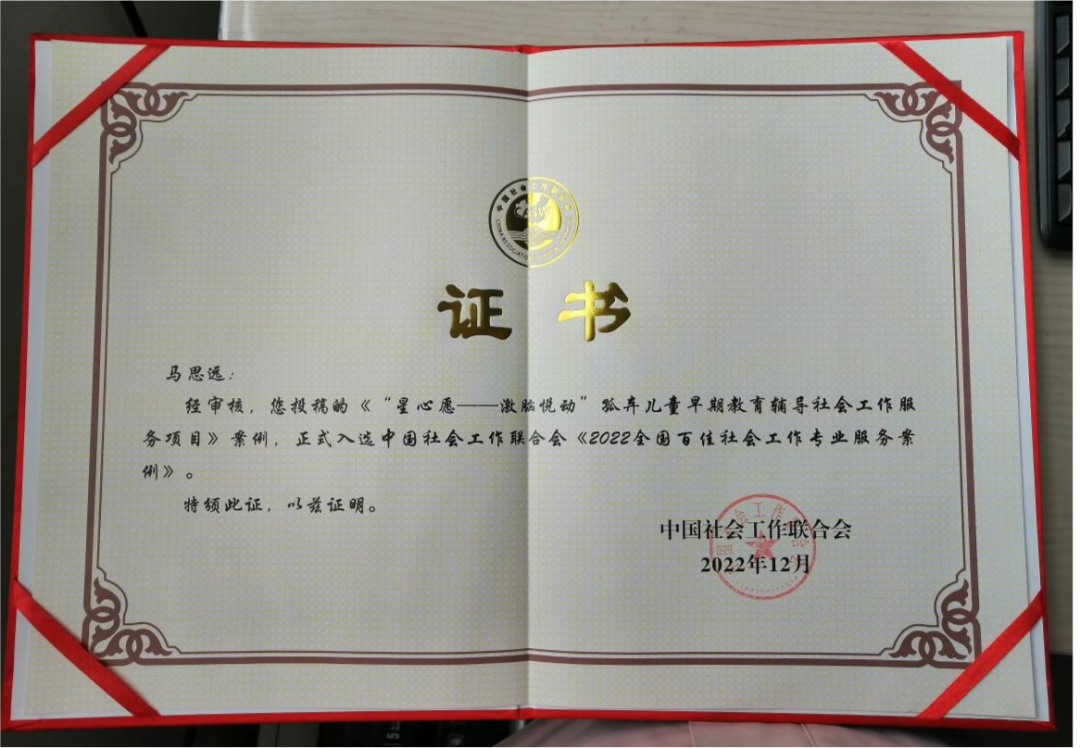 中国社会工作联合会
证书
马思远：
经审核，您投稿的《“星心愿——激脑悦动”孤弃儿童早期教育辅导社会工作服
务项目》案例，正式入选中国社会工作联合会《2022全国百佳社会工作专业服务案
例》。
特颁此证，以兹证明。
中国社会工作联合会
2022年12月